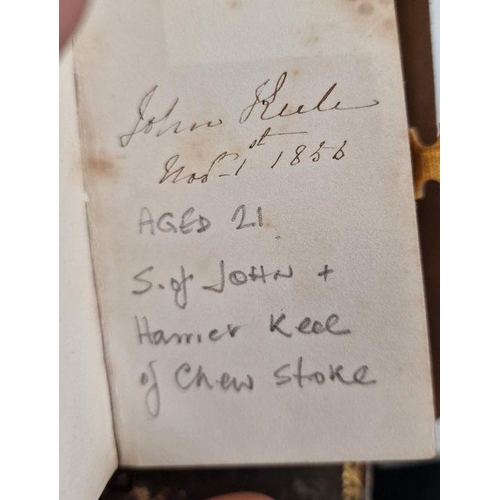 John Keel
Nov 1st 1856
AGED 21
S. of JOHN +
Harriet Keel
of Chew Stoke